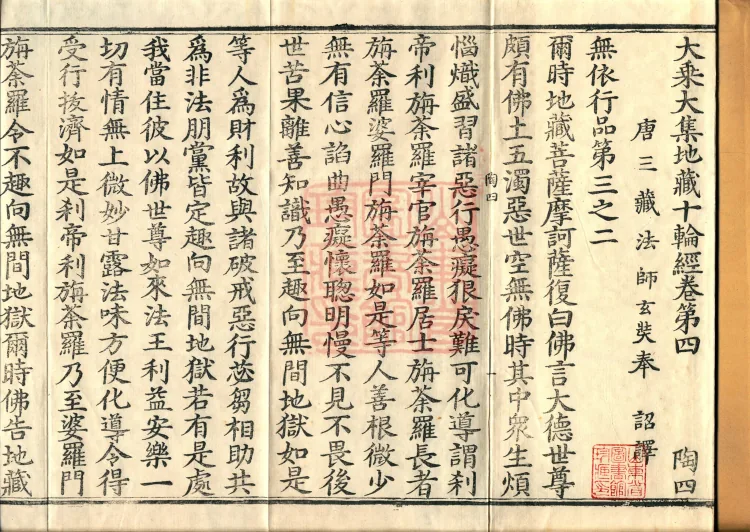 大乘大集地藏十輪經卷第四 陶四
唐三藏法師玄奘奉 詔譯
無依行品第三之二
爾時地藏菩薩摩訶薩復白佛言大德世尊
頗有佛土五濁惡世空無佛時其中衆生煩
陶四
惱熾盛習諸惡行愚癡狠戾難可化導謂刹
帝利旃荼羅宰官旃荼羅居士旃荼羅長者
旃荼羅婆羅門旃荼羅如是等人善根微少
無有信心諂曲愚癡懷聰明慢不見不畏後
世苦果離善知識乃至趣向無間地獄如是
等人爲財利故與諸破戒惡行苾芻相助共
爲非法朋黨皆定趣向無間地獄若有是處
我當住彼以佛世尊如來法王利益安樂一
切有情無上微妙甘露法味方便化導令得
受行拔濟如是刹帝利旃荼羅乃至婆羅門
旃荼羅令不趣向無間地獄爾時佛告地藏